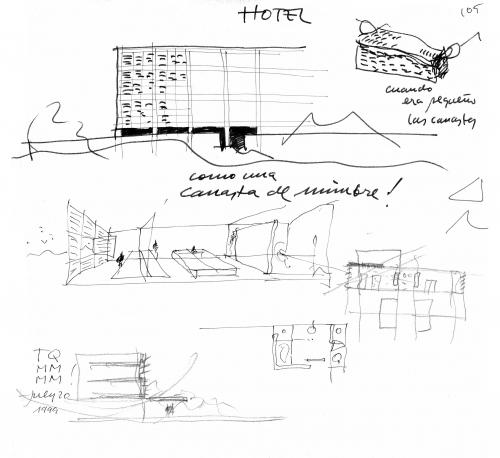 HOTEL
105
cuando
era pequeño
las canastas
como una
canasta de mimbre!
TQ
MM
MM!
1999